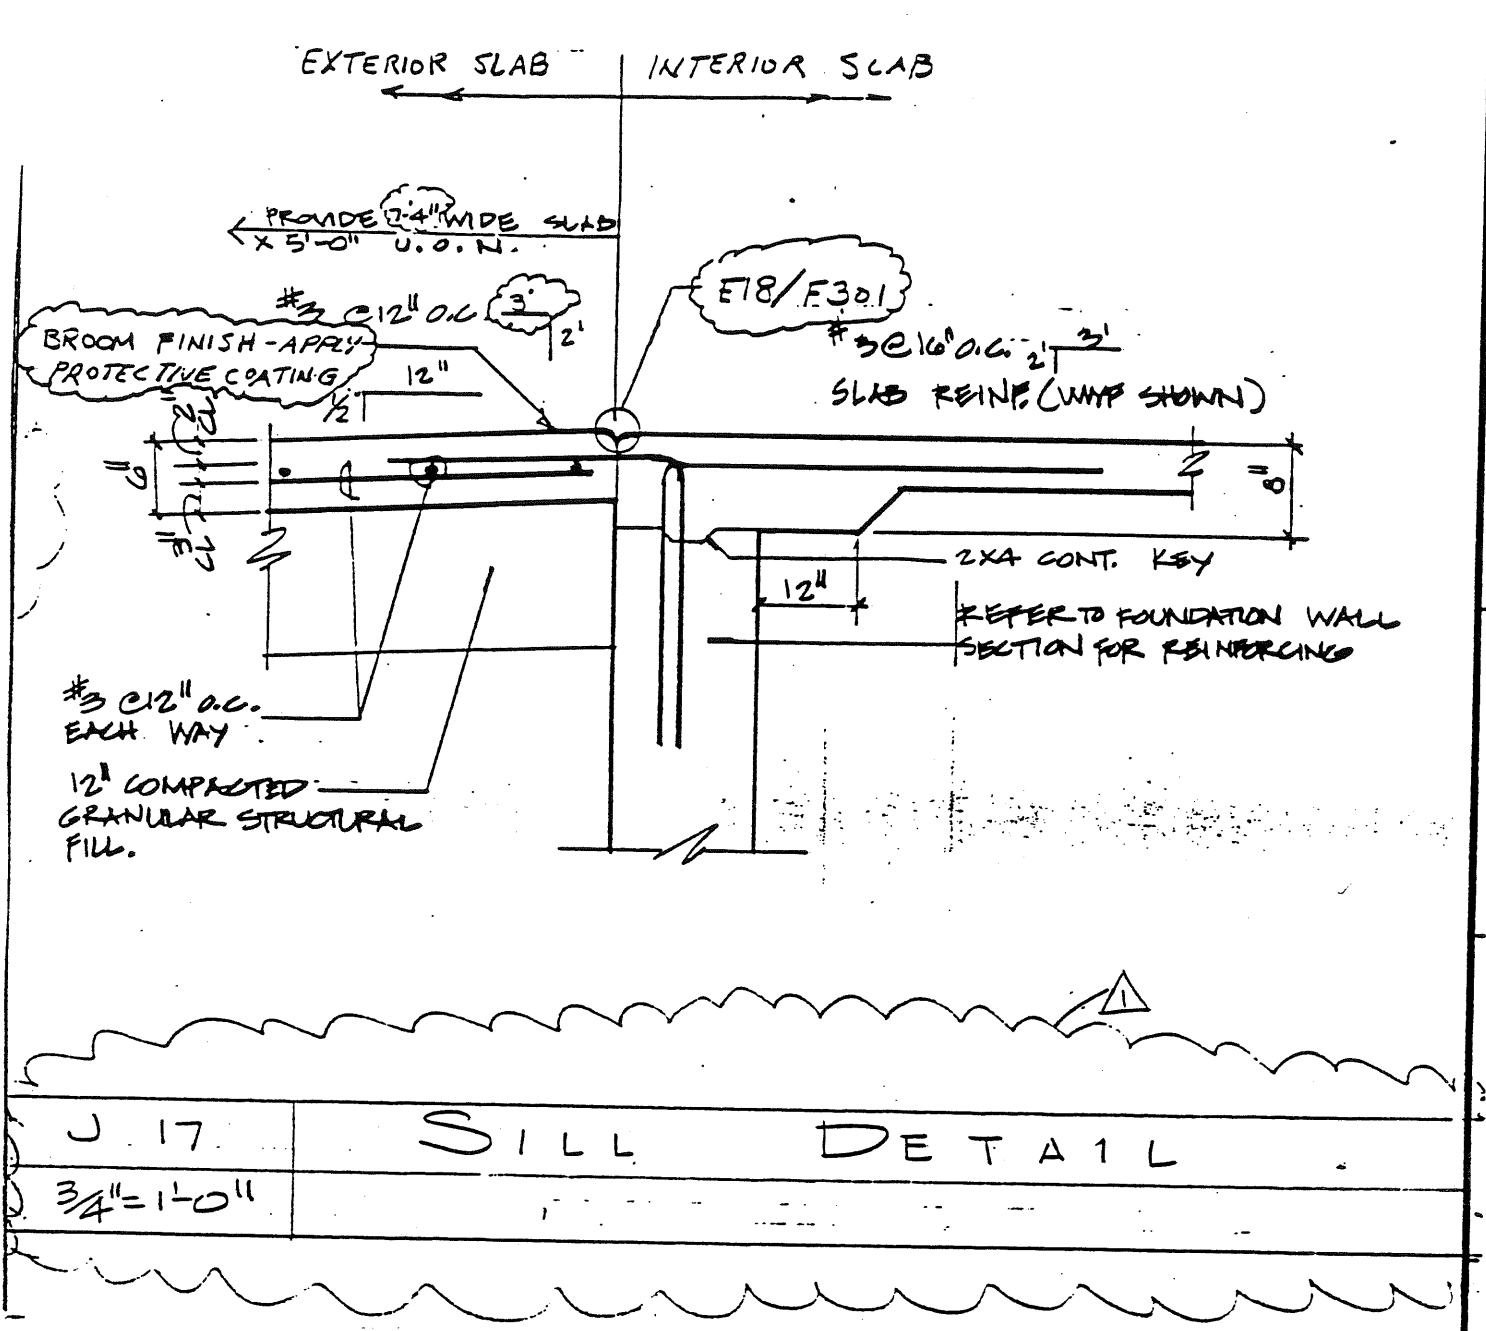 EXTERIOR SLAB
INTERIOR SLAB
PROVIDE 7'-4" WIDE SLAB
X 5'-0" U.O.N.
#3 @ 12" O.C. 3'
2'
E18/
#3 @ 16" O.C. 2' 3'
BROOM FINISH - APPLY
PROTECTIVE COATING
12"
1/2
SLAB REINF. (WWF SHOWN)
2" CL
6"
3" CL
8"
2X4 CONT. KEY
12"
REFER TO FOUNDATION WALL
SECTION FOR REINFORCING
#3 @ 12" O.C.
EACH WAY
12" COMPACTED
GRANULAR STRUCTURAL
FILL.
1
J 17
SILL DETAIL
3/4" = 1'-0"